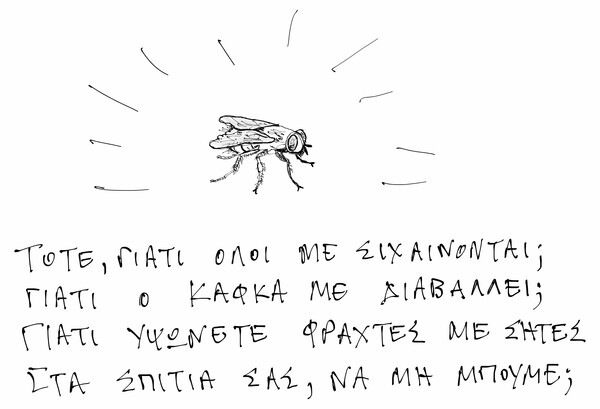 ΤΟΤΕ, ΓΙΑΤΙ ΟΛΟΙ ΜΕ ΣΙΧΑΙΝΟΝΤΑΙ;
ΓΙΑΤΙ Ο ΚΑΦΚΑ ΜΕ ΔΙΑΒΑΛΛΕΙ;
ΓΙΑΤΙ ΥΨΩΝΕΤΕ ΦΡΑΧΤΕΣ ΜΕ ΣΗΤΕΣ
ΣΤΑ ΣΠΙΤΙΑ ΣΑΣ, ΝΑ ΜΗ ΜΠΟΥΜΕ;